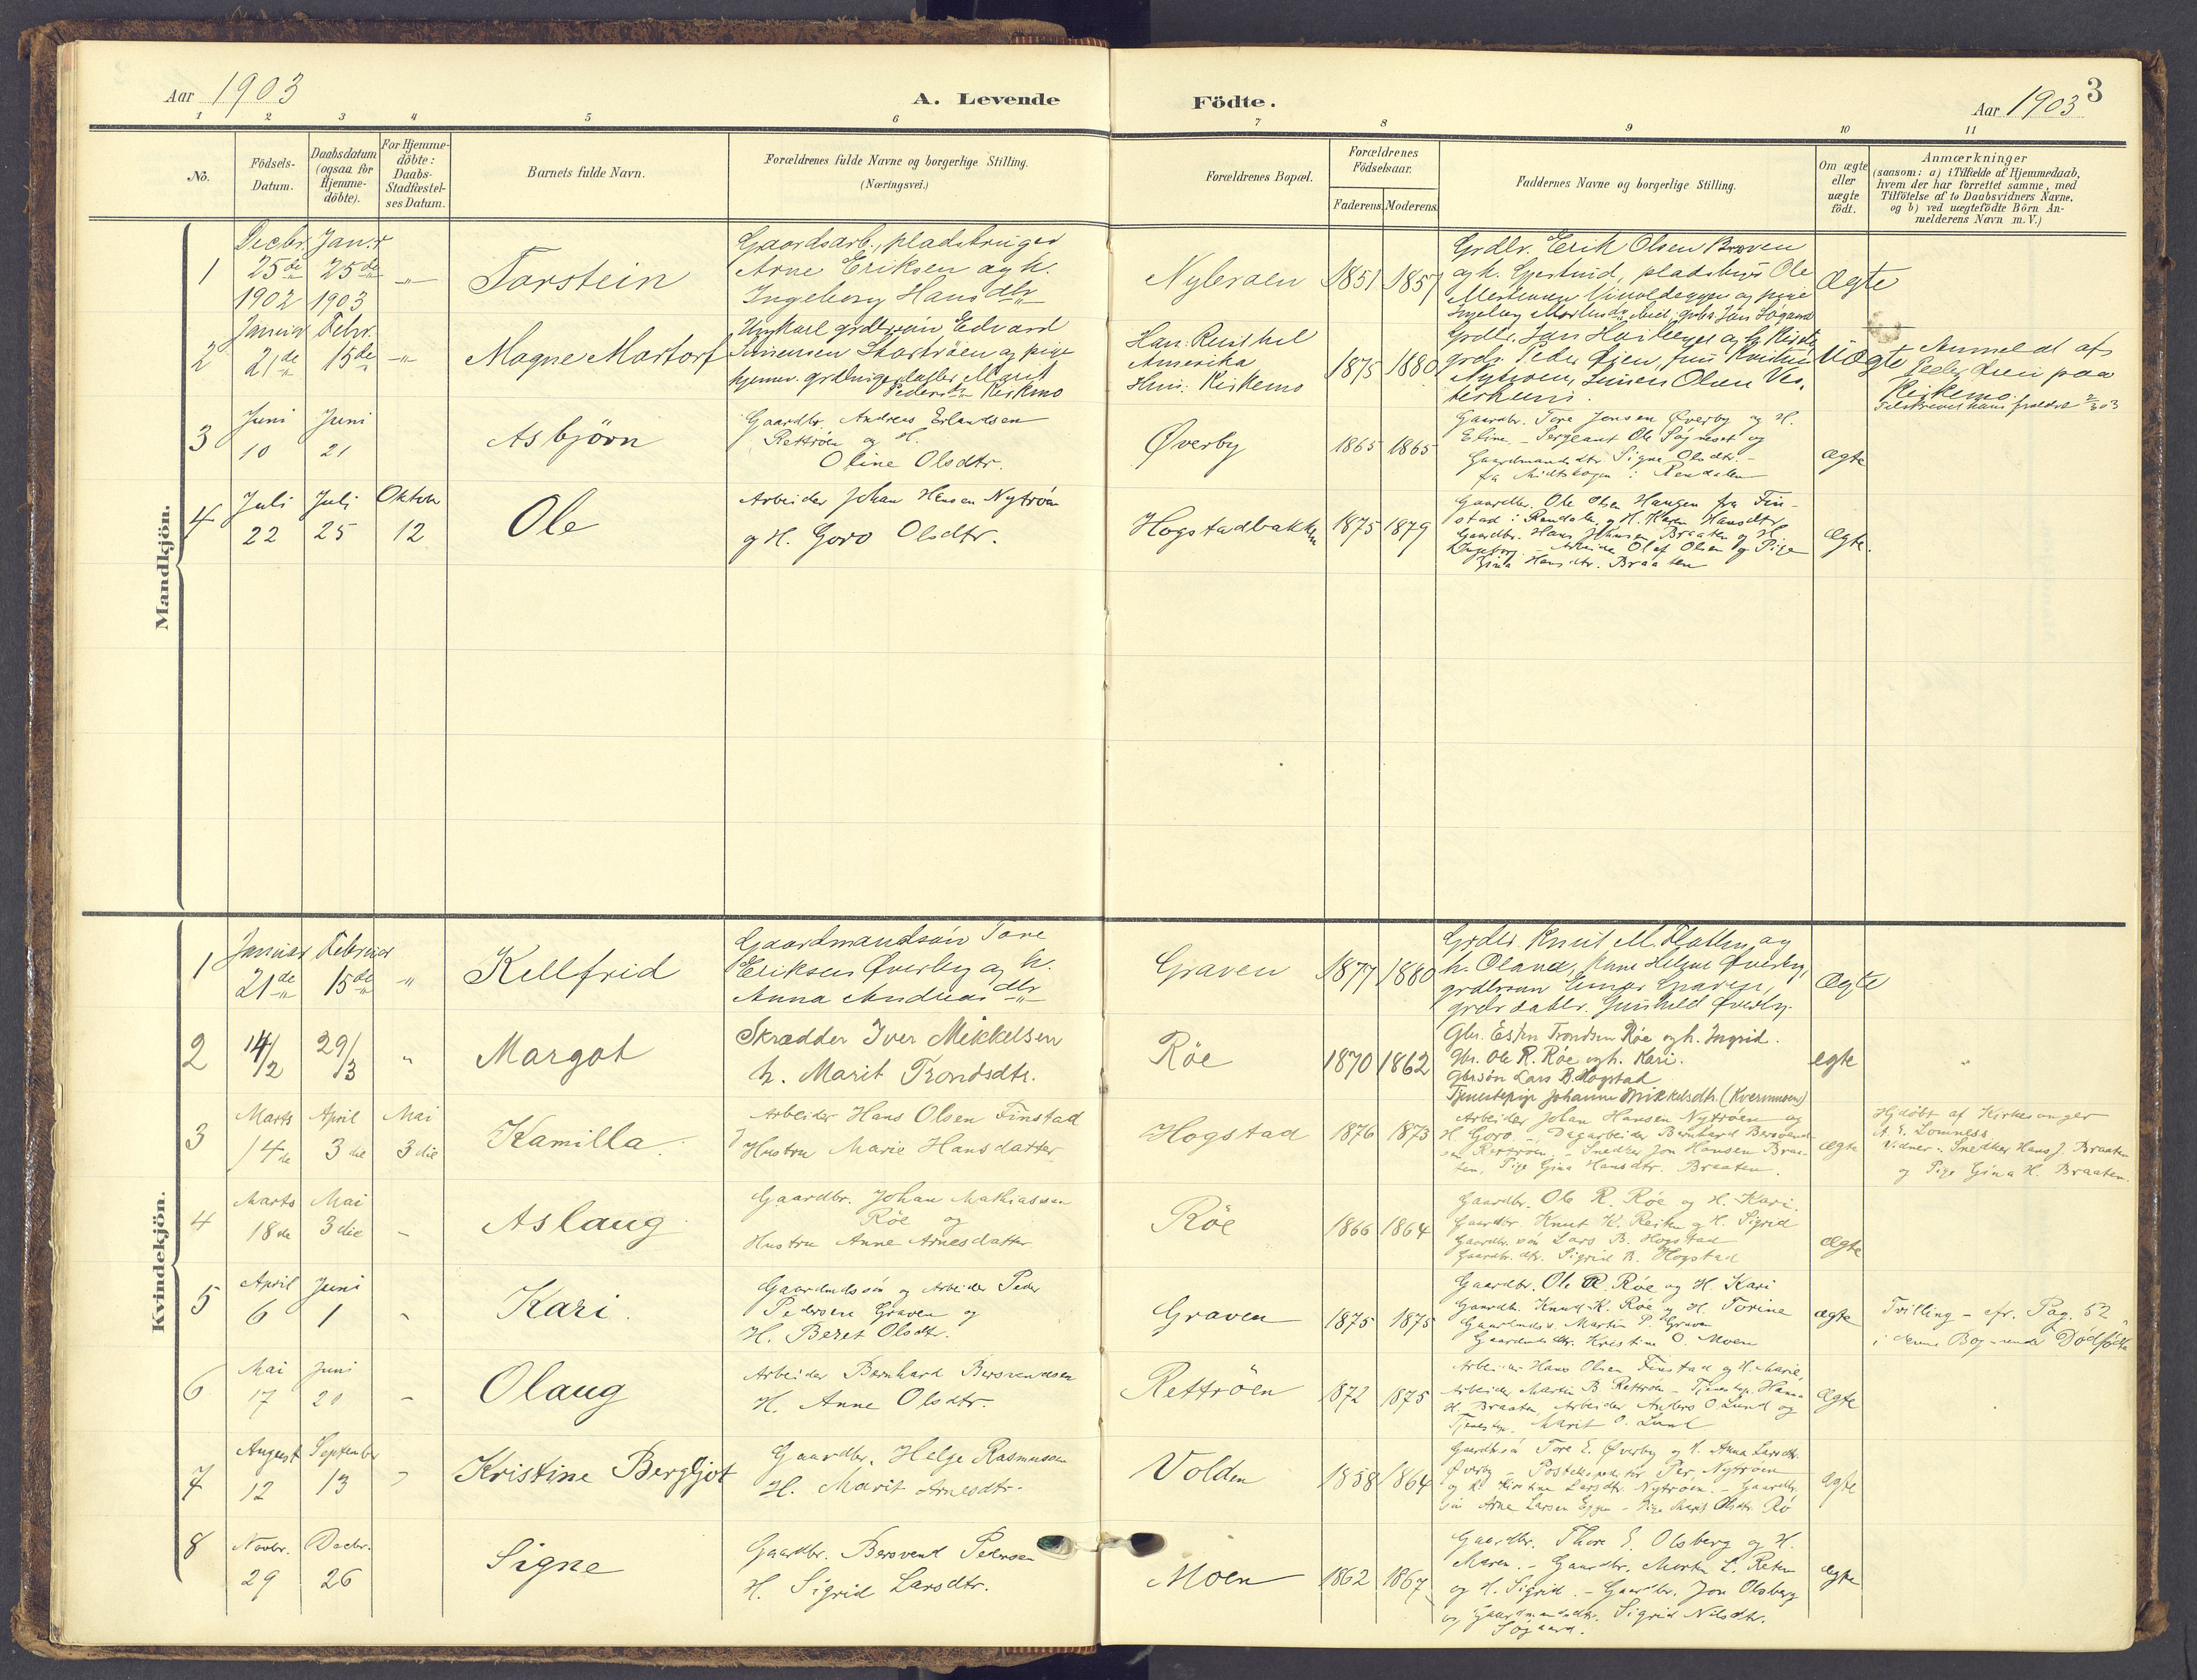 Aar 1903
A. Levende
Födte.
Aar 1903
3
1 2 3 4 5 6 7 8 9 10 11
No.
Födsels-
Datum.
Daabsdatum
(ogsaa for
Hjemme-
döbte).
For Hjemme-
döbte:
Daabs-
Stadfæstel-
ses Datum.
Barnets fulde Navn.
Forældrenes fulde Navne og borgerlige Stilling.
(Næringsvei.)
Forældrenes Bopæl.
Forældrenes
Födselsaar.
Faderens. Moderens.
Faddernes Navne og borgerlige Stilling.
Om ægte
eller
uægte
födt.
Anmærkninger
(saasom: a) i Tilfælde af Hjemmedaab,
hvem der har forrettet samme, med
Tilföielse af to Daabsvidners Navne,
og b) ved uægtefödte Börn An-
melderens Navn m. V.)
Mandkjön.
1
Decbr.
25de
1902
Jan.r
25de
1903
-"-
Torstein
Gaardsarb., pladsbruger
Arne Eriksen og h.
Ingeborg Hansdtr
1851 1857
Grdbr. Erik Olsen
Ægte
2
Januar
21de
Febr.
15de
-"-
Magne Martorf
Ungkarl grdbrsøn Edvard
og pige
Marit
Pedersdtr Kirkemo
Han:
Amerika
Hun: Kirkemo
1875 1880
Uægte
Anmeldt af
Peder paa
Kirkemo.
3
Juni
10
Juni
21
Asbjörn
Gaardbr. Andreas Erlandsen
Rettröen og H.
Oline Olsdtr.
Øverby
1865 1865
Gaardbr. Tore Jonsen Øverby og H.
Eline. - Sergeant Ole Søgneset og
Gaardmandsdtr. Signe Olsdtr. -
fra Midtskogen i Rendalen
ægte
4
Juli
22
Juli
25
Oktober
12
Ole
Arbeider Johan Hansen Nytröen
og H. Goro Olsdtr.
Hogstadbakken
1875 1879
Gaardbr. Ole Olsen Haugen fra Fin-
stad i Rendalen og H. Karen Hansdtr
Gaardbr. Hans Johnsen Braaten og H.
Ingeborg. - Arbeider Olaf Olsen og Pige
Gina Hansdtr. Braaten
Ægte.
Kvindekjön.
1
Januar
21de
Februar
15de
"
Kellfrid
Gaardmandsøn Tore
Eriksen Øverby og h.
Anna Andreasdtr
Graven
1877 1880
Grdbr. Knut M. og
h. Olava, Helene Øverby,
grdbrsøn Einar Graven,
grdbr datter Gunhild Øverby.
Ægte
2
14/2
29/3
"
Margot
Skrædder Iver Mikkelsen
h. Marit Trondsdtr.
Röe
1870 1862
Gbr. Esten Trondsen Röe og h. Ingrid.
Gbr. Ole R. Röe og h. Kari.
Gbrsön Lars B. Hogstad
Tjenestepige Johanne Mikkelsdtr. (Kvernmoen)
egte
"
3
Marts
14de
April
3die
Mai
3die
Kamilla.
Arbeider Hans Olsen Finstad
og Hustru Marie Hansdatter
Hogstad
1876 1873
Arbeider Johan Hansen Nytröen og
H. Goro. - Dagarbeider Bernhard Bersvend-
sen Rettröen. - Snedker Jon Hansen Braa-
ten, Pige Gina Hansdtr. Braaten.
ægte
Hjdöbt af Kirkesanger
A. E. Lomness
Vidner: Snedker Hans J. Braaten
og Pige Gina H. Braaten.
4
Marts
18de
Mai
3die
-
Aslaug
Gaardbr. Johan Mathiassen
Röe og
Hustru Anne Arnesdatter
Röe
1866 1864
Gaardbr. Ole R. Röe og H. Kari.
Gaardbr. Knut K. Reiten og H. Sigrid
Gaardbr. sön Lars B. Hogstad
Gaardbr. dtr. Sigrid B. Hogstad
ægte
5
April
6
Juni
1
-
Kari.
Gaardmdssön og Arbeider Peder
Pedersen Graven og
H. Beret Olsdtr.
Graven
1875 1875
Gaardbr. Ole R. Röe og H. Kari
Gaardbr. Knud K. Röe og H. Torine
Gaardmdss. Martin P. Graven
Gaardmdsdtr. Kristine O Moen
ægte
Tvilling - cfr. Pag. 52
i denne Bog under "Dödfödte"
6
Mai
17
Juni
20
-
Olaug
Arbeider Bernhard Bersvendsen
H. Anne Olsdtr.
Rettröen
1872 1875
Arbeider Hans Olsen Finstad og H. Marie,
Arbeider Martin B. Rettröen - Tjenestep. Hanna
H. Braaten, Arbeider Anders O. Lund og
Tjenestep. Marit O. Lund
Ægte
7
August
12
September
13
-
Kristine Bergljot
Gaardbr. Helge Rasmussen
H. Marit Arnesdtr.
Volden
1858 1864
Gaardbrsön Tore E. Øverby og H. Anna Larsdtr.
Øverby - Postekspeditör Per Nytröen
og H. Kirstine Larsdtr. Nytröen. - Gaardbr.
sön Arne Larsen Eggen - Pige Marit Olsdtr. Rö
ægte
8
Novbr.
29
Decbr.
26
Signe
Gaardbr. Bersvend Pedersen
H. Sigrid Larsdtr.
Moen
1862 1867
Gaardbr. Thore E. Olsberg og H.
Maren. - Gaardbr. Morten L. Reten
og H. Sigrid. - Gaardbr. Jon Olsberg
og Gaardmandsdtr. Sigrid Nilsdtr.
Søgaard.
ægte